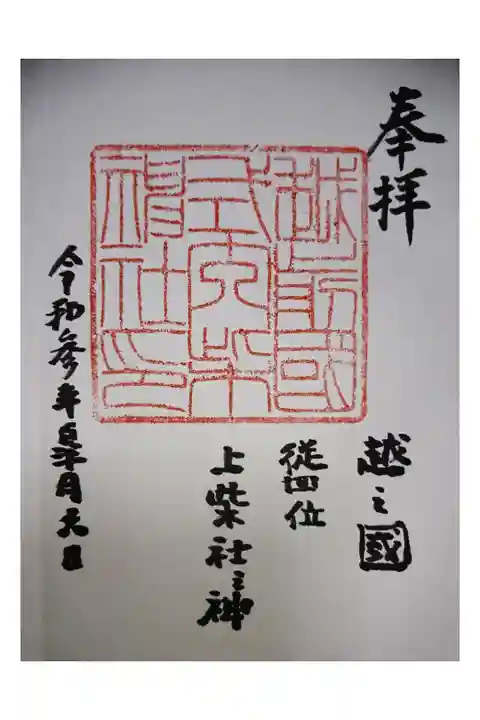 奉拝
越之國
従四位
上柴社之神
令和参年 月六日
越前國
神社印